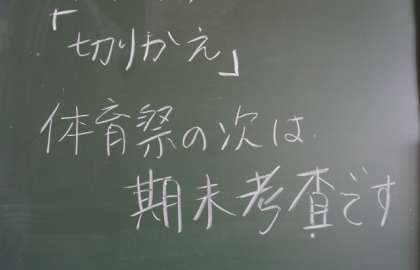 「
切りかえ」
体育祭の次は
期末考査です